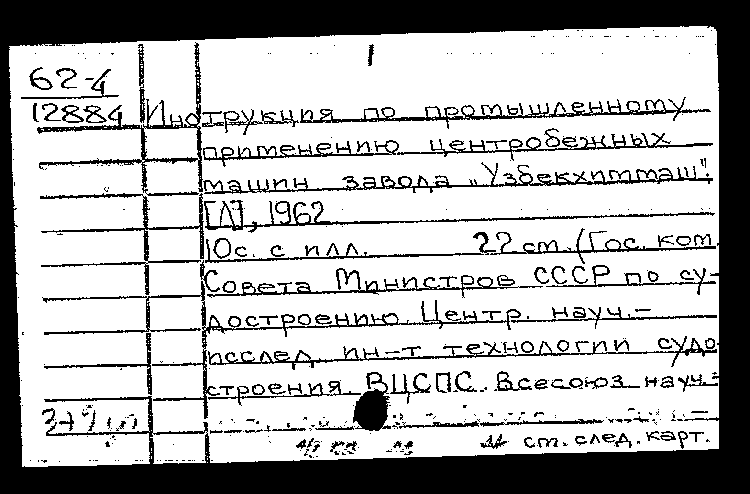 1
62-4
12884 Инструкция по промышленному
применению центробежных
машин завода „Узбекхиммаш".
[Л], 1962
10с. с илл. 22 см. (Гос. ком.
Совета Министров СССР по су-
достроению. Центр. науч.-
исслед. ин-т технологии судо-
строения. ВЦСПС. Всесоюз. науч.-
см. след. карт.